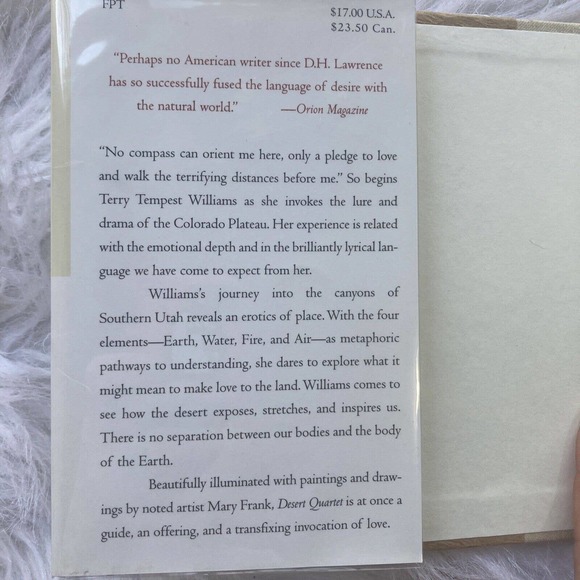 FPT
$17.00 U.S.A.
$23.50 Can.
“Perhaps no American writer since D.H. Lawrence
has so successfully fused the language of desire with
the natural world.” —Orion Magazine
“No compass can orient me here, only a pledge to love
and walk the terrifying distances before me.” So begins
Terry Tempest Williams as she invokes the lure and
drama of the Colorado Plateau. Her experience is related
with the emotional depth and in the brilliantly lyrical lan-
guage we have come to expect from her.
Williams’s journey into the canyons of
Southern Utah reveals an erotics of place. With the four
elements—Earth, Water, Fire, and Air—as metaphoric
pathways to understanding, she dares to explore what it
might mean to make love to the land. Williams comes to
see how the desert exposes, stretches, and inspires us.
There is no separation between our bodies and the body
of the Earth.
Beautifully illuminated with paintings and draw-
ings by noted artist Mary Frank, Desert Quartet is at once a
guide, an offering, and a transfixing invocation of love.